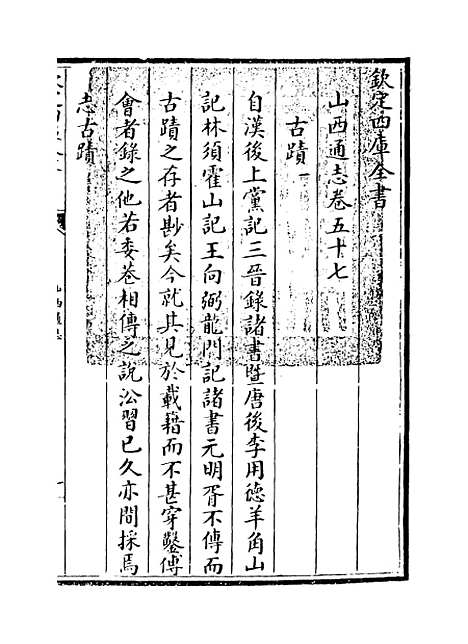 欽定四庫全書
山西通志卷五十七
古蹟一
自漢後上黨記三晉錄諸書暨唐後李用德羊角山
記林須霍山記王向弼龍門記諸書元明胥不傳而
古蹟之存者尠矣今就其見於載籍而不甚穿鑿傅
會者錄之他若委巷相傳之說沿習已久亦間採焉
志古蹟